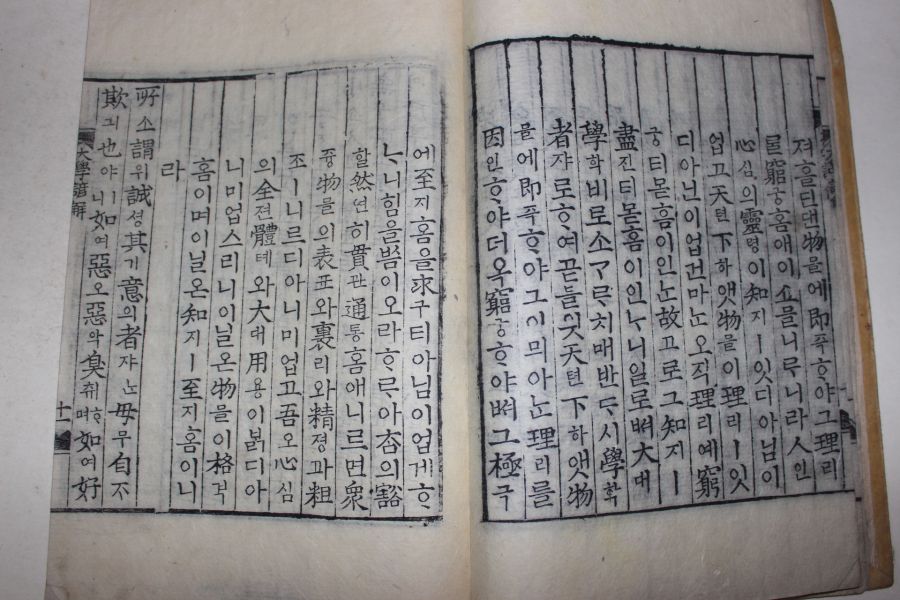 져홀딘댄物믈에卽즉ᄒᆞ야그理리
ᄅᆞᆯ窮궁홈애이쇼ᄆᆞᆯ니ᄅᆞ니라人인
心심의靈령이知지ㅣ잇디아님이
업고天텬下하앳物믈이理리ㅣ잇
디아닌이업건마ᄂᆞᆫ오직理리예窮
궁티몯홈이인ᄂᆞᆫ故고로그知지ㅣ
盡진티몯홈이인ᄂᆞ니일로ᄡᅥ大대
學학비로소ᄀᆞᄅᆞ치매반ᄃᆞ시學학
者쟈로ᄒᆞ여곰믈읫天텬下하앳物
믈에卽즉ᄒᆞ야그이믜아ᄂᆞᆫ理리ᄅᆞᆯ
因인ᄒᆞ야더옥窮궁ᄒᆞ야ᄡᅥ그極극
에至지홈을求구티아님이업게ᄒᆞ
ᄂᆞ니힘을ᄡᅳᆷ이오라ᄒᆞᄅᆞ아ᄎᆞᆷ의豁
활然연히貫관通통홈애니르면衆
즁物믈의表표와裏리와精졍과粗
조ㅣ니르디아니미업고吾오心심
의全젼體톄와大대用용이ᄇᆞᆰ디아
니미업스리니이닐온物믈이格격
홈이며이닐온知지ㅣ至지홈이니
라
所소謂위誠셩其기意의者쟈ᄂᆞᆫ毋무自ᄌᆞ
欺긔也야ㅣ니如여惡오惡악臭취ᄒᆞ며如여好
大學諺解
十一